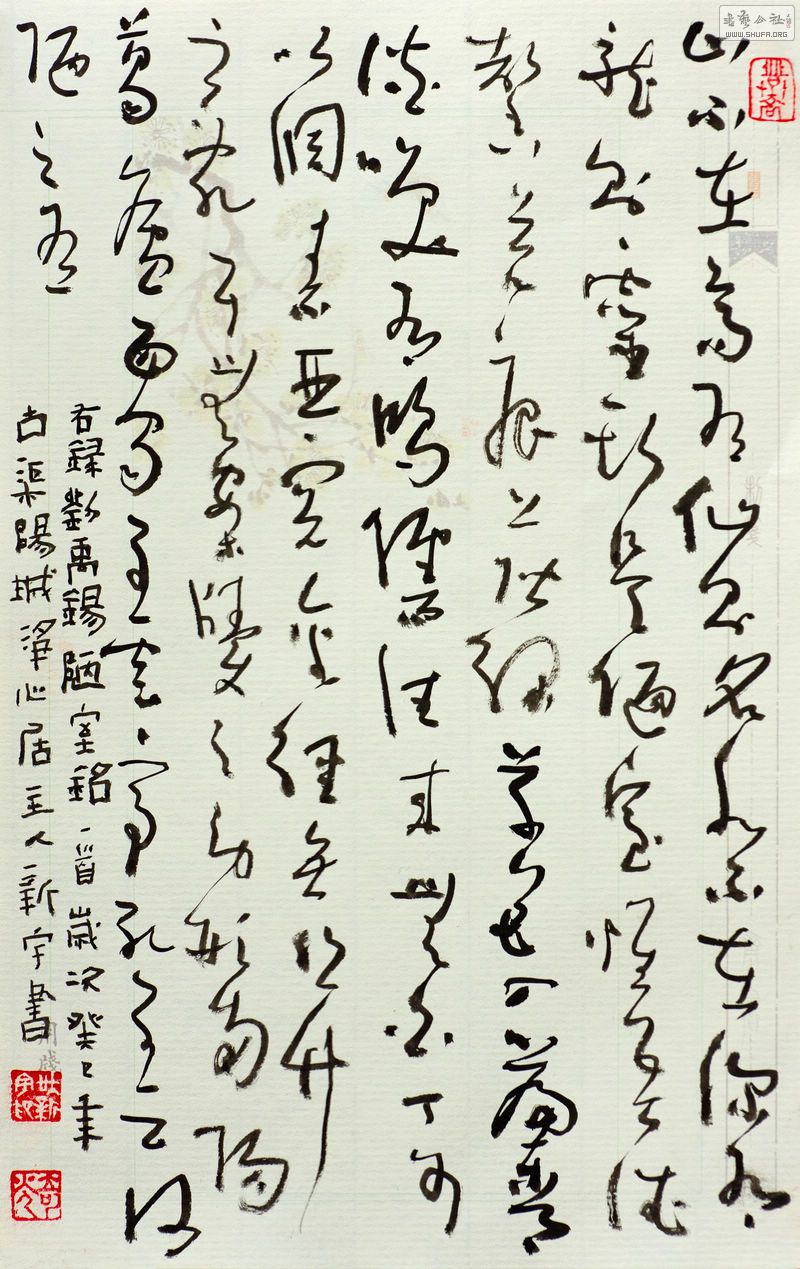 山不在高有仙則名水不在深有
龍則靈斯是陋室惟吾德
馨苔痕上階綠草色入簾青
談笑有鴻儒往來無白丁可
以調素琴閱金經無絲竹
之亂耳無案牘之勞形南陽
葛廬西蜀子雲亭孔子云何
陋之有
右録劉禹錫陋室銘一首歲次癸巳年
古渠陽城淨心居主人新宇書
書藝公社
WWW.SHUFA.ORG